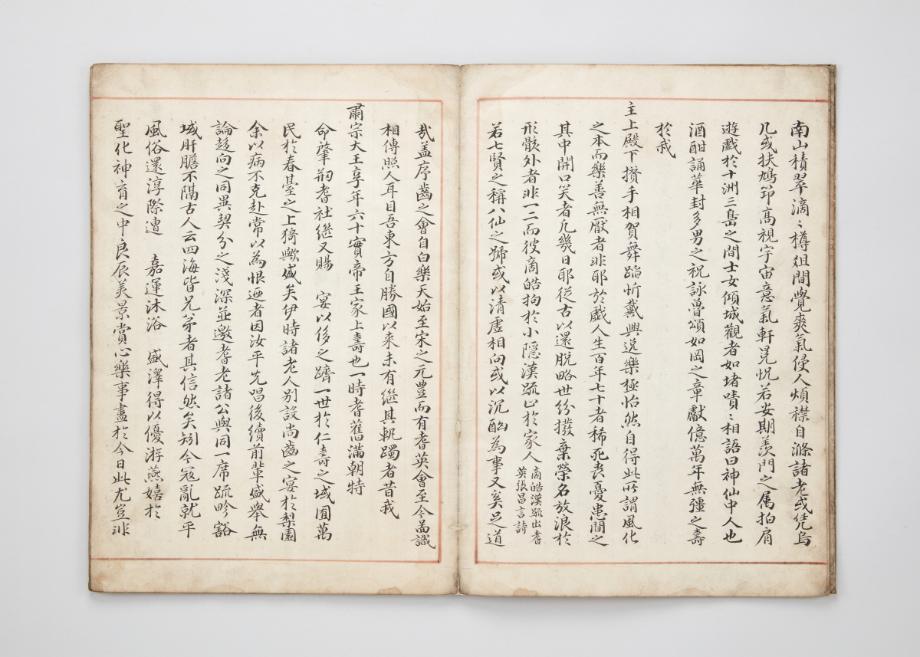 南山積翠滴〻樽俎間覺爽氣侵人煩襟自滌諸老或凭烏
几或扶鳩笻高視宇宙意氣軒晃怳若安期羨門之属拍肩
遊戱於十洲三島之間士女傾城觀者如堵嘖〻相語曰神仙中人也
酒酣誦華封多男之祝詠魯頌如岡之章獻億萬年無彊之壽
於我
主上殿下攅手相賀舞蹈忻戴興逸樂極怡然自得此所謂風化
之本而樂善無厭者非耶於戱人生百年七十者稀死喪憂患間之
其中開口笑者凡幾日耶從古以還脱略世紛撥棄榮名放浪於
形骸外者非一二而彼商皓拘於小隱漢䟽止於家人商皓漢䟽出耆
英張昌言詩
若七賢之稱八仙之號或以清虛相向或以沉酗為事又奚足道
哉盖序齒之會自白樂天始至宋之元豊而有耆英會至今啚識
相傳照人耳目吾東方自勝國以來未有継其軌躅者昔我
肅宗大王享年六十實帝王家上壽也一時耆舊滿朝特
命肇刱耆社継又賜 宴以侈之躋一世於仁壽之域囿萬
民於春臺之上猗歟盛矣伊時諸老人別設尚齒之宴於梨園
余以病不克赴常以為恨迺者因汝平先唱後續前軰盛舉無
論趍向之同異契分之淺深並邀耆老諸公與同一席䟽畛豁
城肝膽不隔古人云四海皆兄弟者其信然矣矧今冦亂就平
風俗還淳際遭 嘉運沐浴 盛澤得以優游燕嬉於
聖化神育之中良辰美景賞心樂事盡於今日此尤豈非